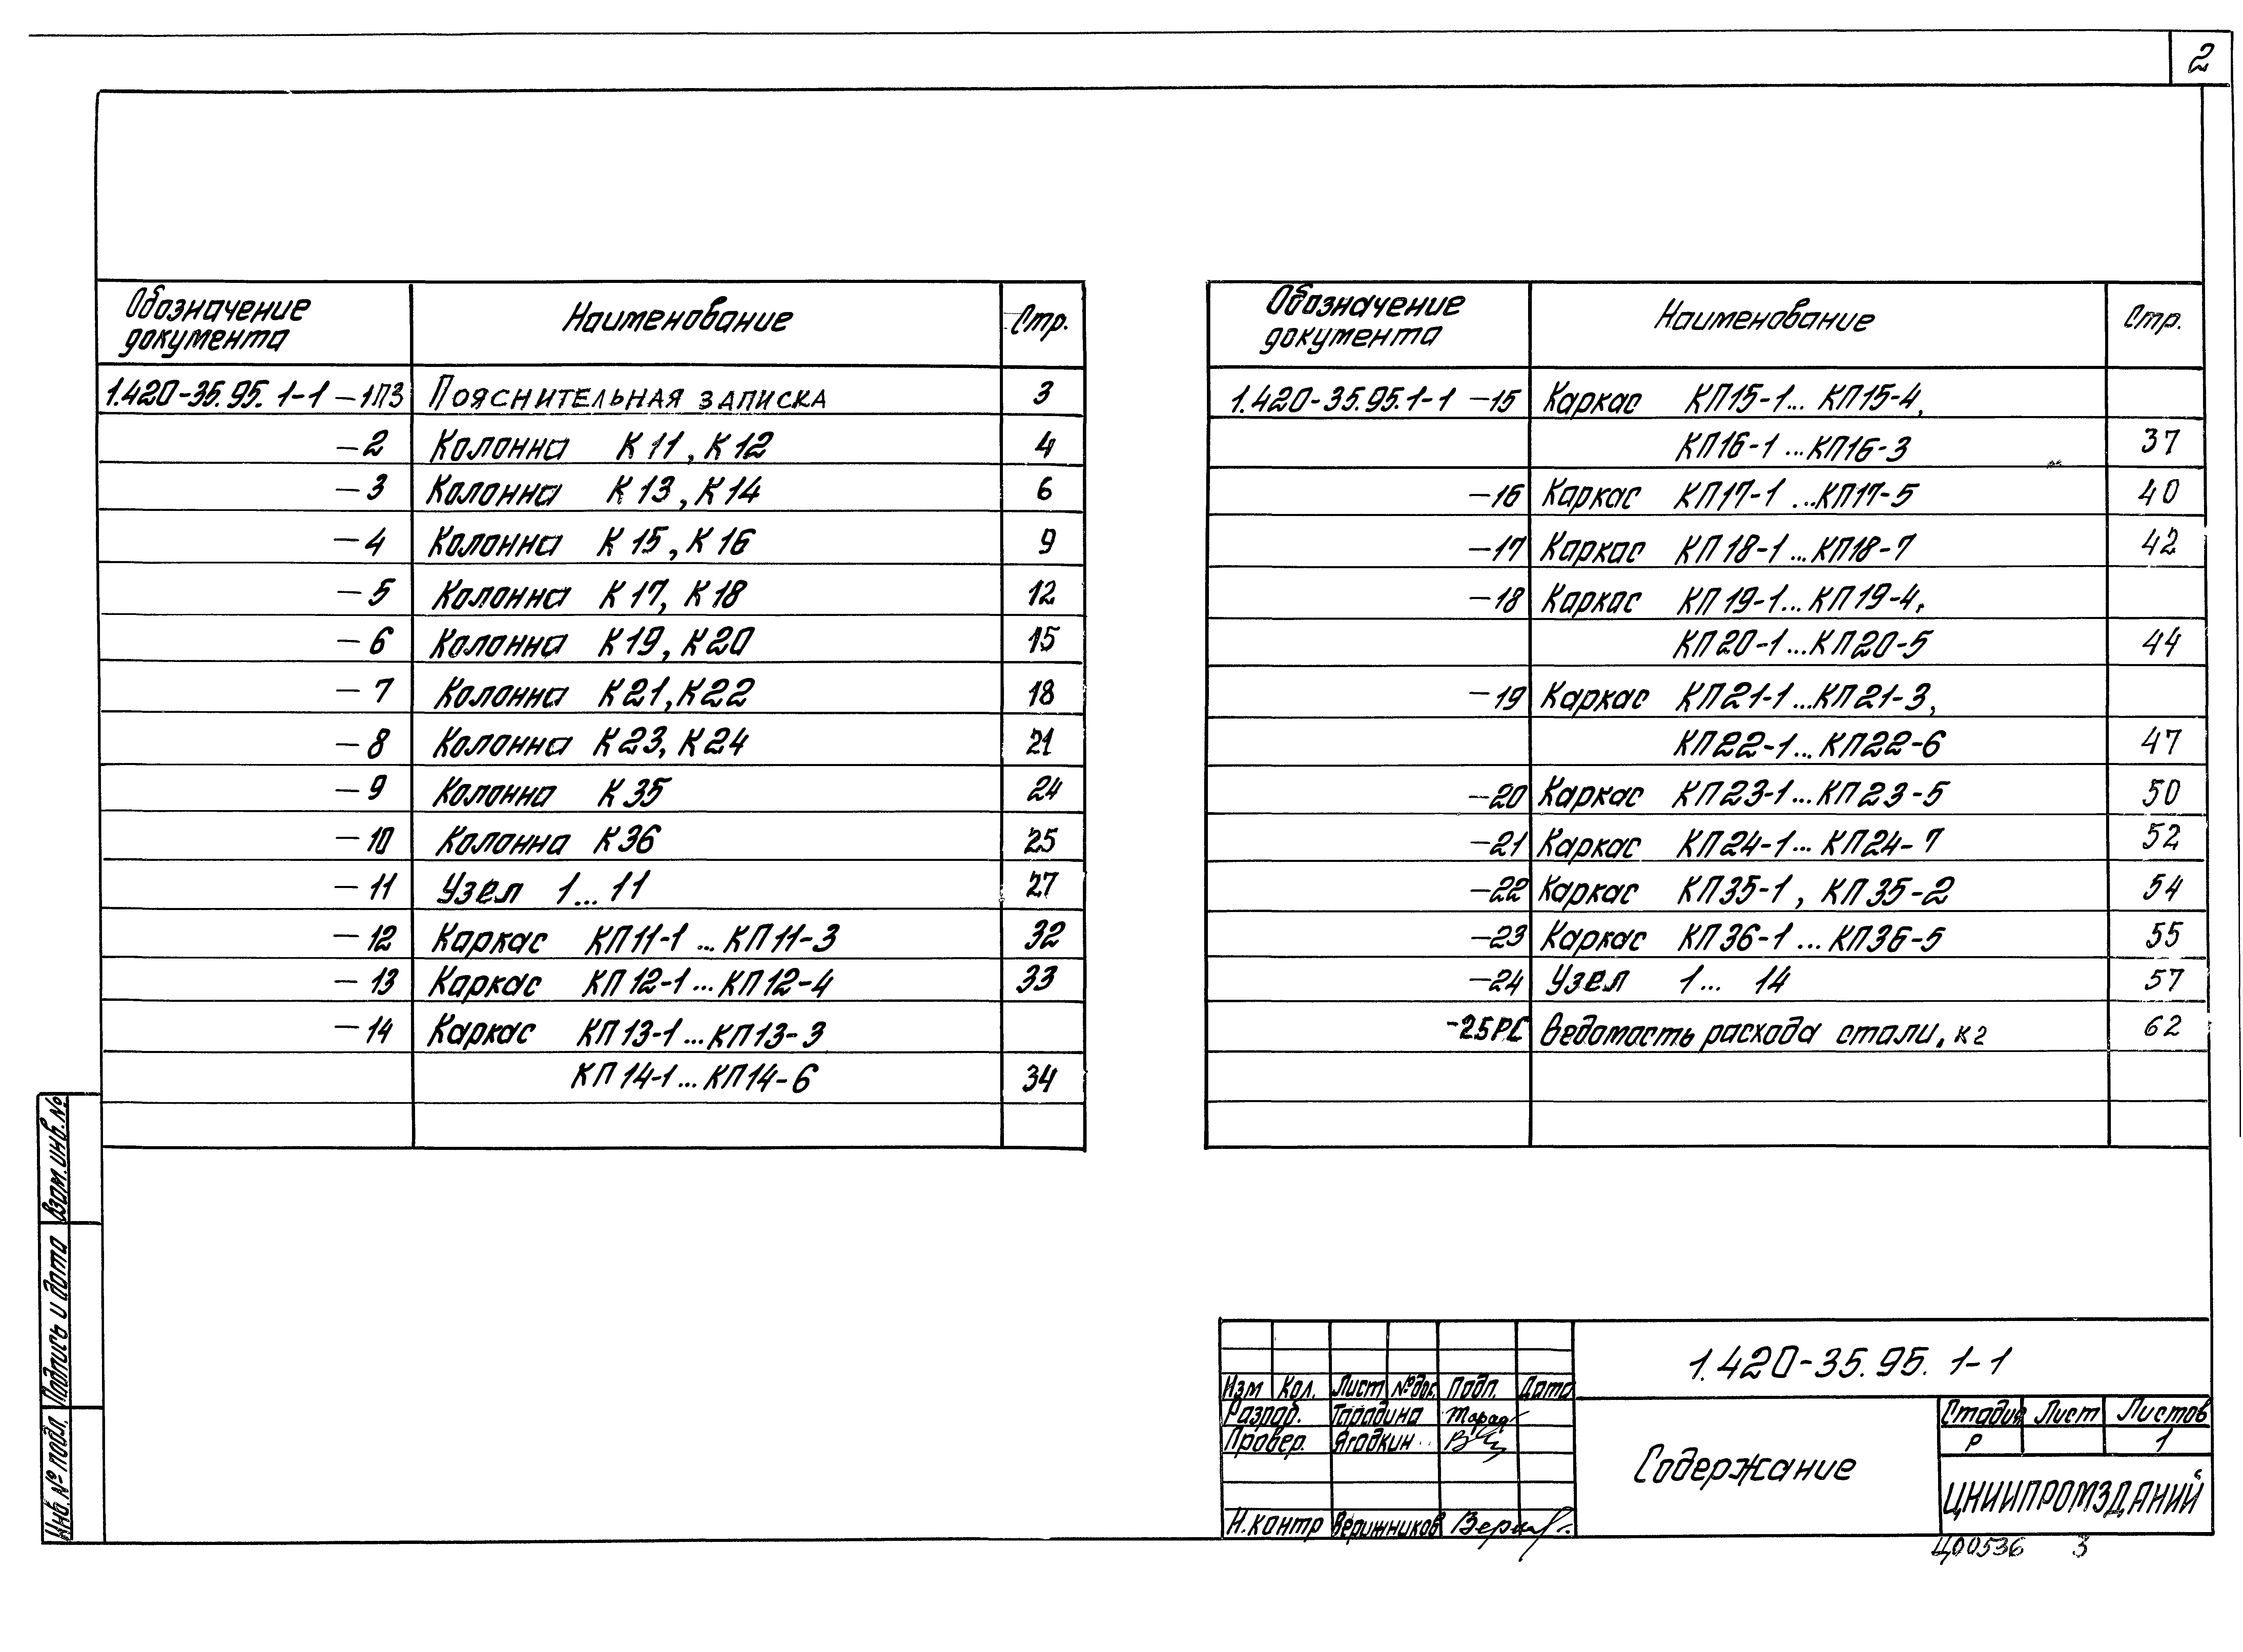 2
Обозначение документа Наименование Стр.
1.420-35.95.1-1 -1ПЗ Пояснительная записка 3
-2 Колонна К11, К12 4
-3 Колонна К13, К14 6
-4 Колонна К15, К16 9
-5 Колонна К17, К18 12
-6 Колонна К19, К20 15
-7 Колонна К21, К22 18
-8 Колонна К23, К24 21
-9 Колонна К35 24
-10 Колонна К36 25
-11 Узел 1...11 27
-12 Каркас КП11-1 ... КП11-3 32
-13 Каркас КП12-1 ... КП12-4 33
-14 Каркас КП13-1 ... КП13-3
КП14-1 ... КП14-6 34
Обозначение документа Наименование Стр.
1.420-35.95.1-1 -15 Каркас КП15-1... КП15-4,
КП16-1 ... КП16-3 37
-16 Каркас КП17-1 ... КП17-5 40
-17 Каркас КП18-1 ... КП18-7 42
-18 Каркас КП19-1 ... КП19-4,
КП20-1 ... КП20-5 44
-19 Каркас КП21-1 ... КП21-3,
КП22-1 ... КП22-6 47
-20 Каркас КП23-1 ... КП23-5 50
-21 Каркас КП24-1 ... КП24-7 52
-22 Каркас КП35-1, КП35-2 54
-23 Каркас КП36-1 ... КП36-5 55
-24 Узел 1... 14 57
-25РС Ведомость расхода стали, кг 62
Взам. инв. №
Подпись и дата
Инв. № подл.
1.420-35.95. 1-1
Изм Кол. Лист № док. Подп. Дата
Разраб. Тарадина
Провер. Ягодкин
Н.контр Верижников
Содержание
Стадия Лист Листов
Р 1
ЦНИИПРОМЗДАНИЙ
Ц00536 3